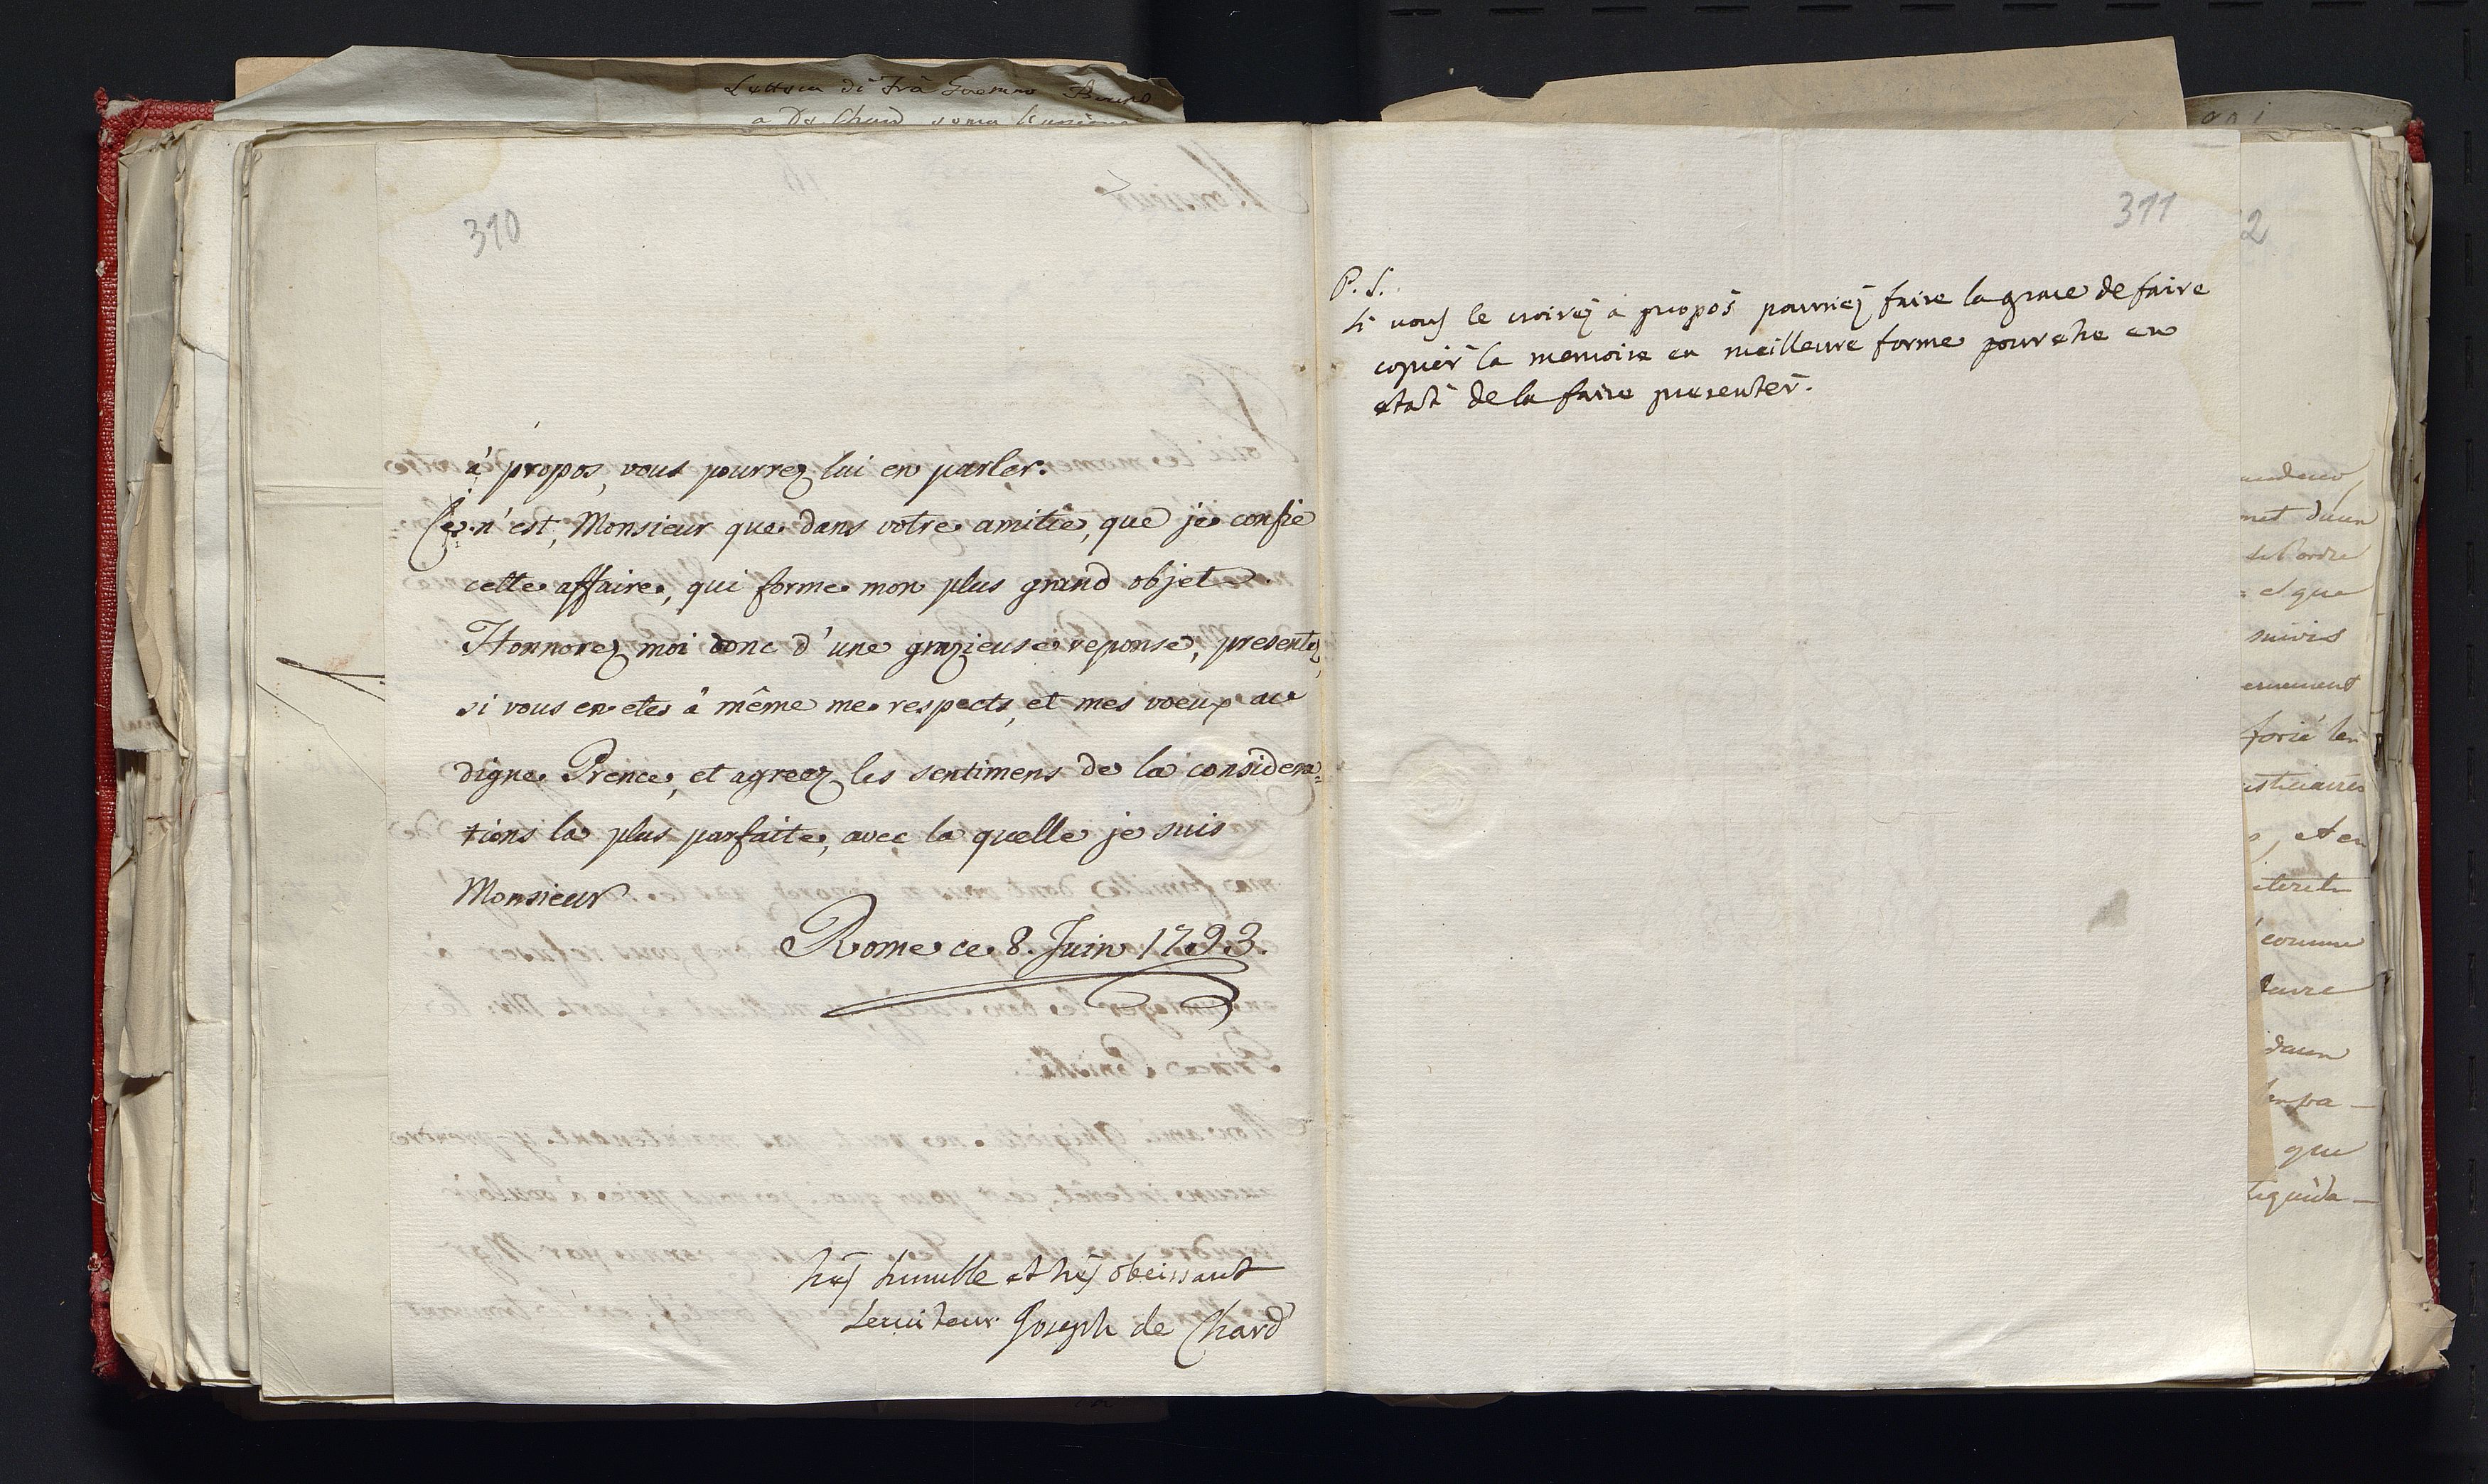 Lettera di Frà
310
à propos, vous pourrez lui en parler.
Ce n'est, Monsieur que dans votre amitie, que je confie
cette affaire, qui forme mon plus grand objet.
Honnorez moi donc d'une grazieuse reponse, presentez,
si vous en etes à même mes respects, et mes voeux au
digne Prence, et agreez les sentimens de la considera=
tions la plus parfaite, avec la quelle je suis
Monsieur
Rome ce 8. Juin 1793.
trés humble et trés obeissant
Serviteur Joseph de Chard
311
P. S.
Si vous le croirez à propos pourriez faire la grace de faire
copier la memoire en meilleure forme pour etre en
etat de la faire presenter.
2
met d'un
de l'ordre
et que
suivis
ernement
forcé les
, et en
comme
d'aun
que
liquida-